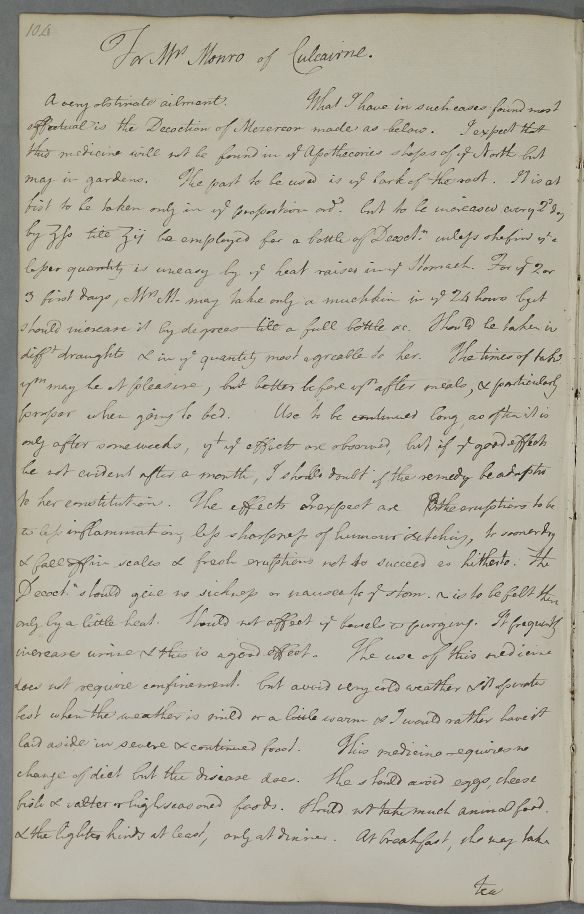 104
For Mrs Monro of Culcairne.
A very obstinate ailment. What I have in such cases found most
effectual is the Decoction of Mezereon made as below. I expect that
this medicine will not be found in ye Apothecaries shops of ye North but
may in gardens. The part to be used is ye bark of the root. It is at
first to be taken only in ye proportion ordd. but to be increased every 2d day
by ʒſs till ʒij be employed for a bottle of Decoctn unless she find ye a
lesser quantity is uneasy by ye heat raises in ye Stomach. For ye 2 or
3 first days, Mrs M. may take only a mutchkin in ye 24 hours but
should increase it by degrees till a full bottle &c. Should be taken in
difft draughts & in ye quantity most agreable to her. The times of takg
ym may be at pleasure, but better before yn after meals, & particularly
proper when going to bed. Use to be continued long, as often it is
only after some weeks, yt ye effects are observed, but if ye good effects
be not evident after a month, I should doubt if the remedy be adapted
to her constitution. The effects I expect are the eruptions to be
less inflammation, less sharpness of humour & itching, to sooner dry
& fall off in scales & fresh eruptions not to succeed as hitherto. The
Decoctn should give no sickness or nausea to ye stom. & is to be felt there
only by a little heat. Should not affect ye bowels to purging. It frequently
increases urine & this is a good effect. The use of this medicine
does not require confinement. but avoid very cold weather & it operates
best when the weather is mild or a little warm & I would rather have it
laid aside in severe & continued frost. This medicine requires no
change of diet but the disease does. She should avoid eggs, cheese
fish & salted or high seasoned foods. Should not take much animal food.
& the lighter kinds at least, only at dinner. At breakfast, she may take
tea